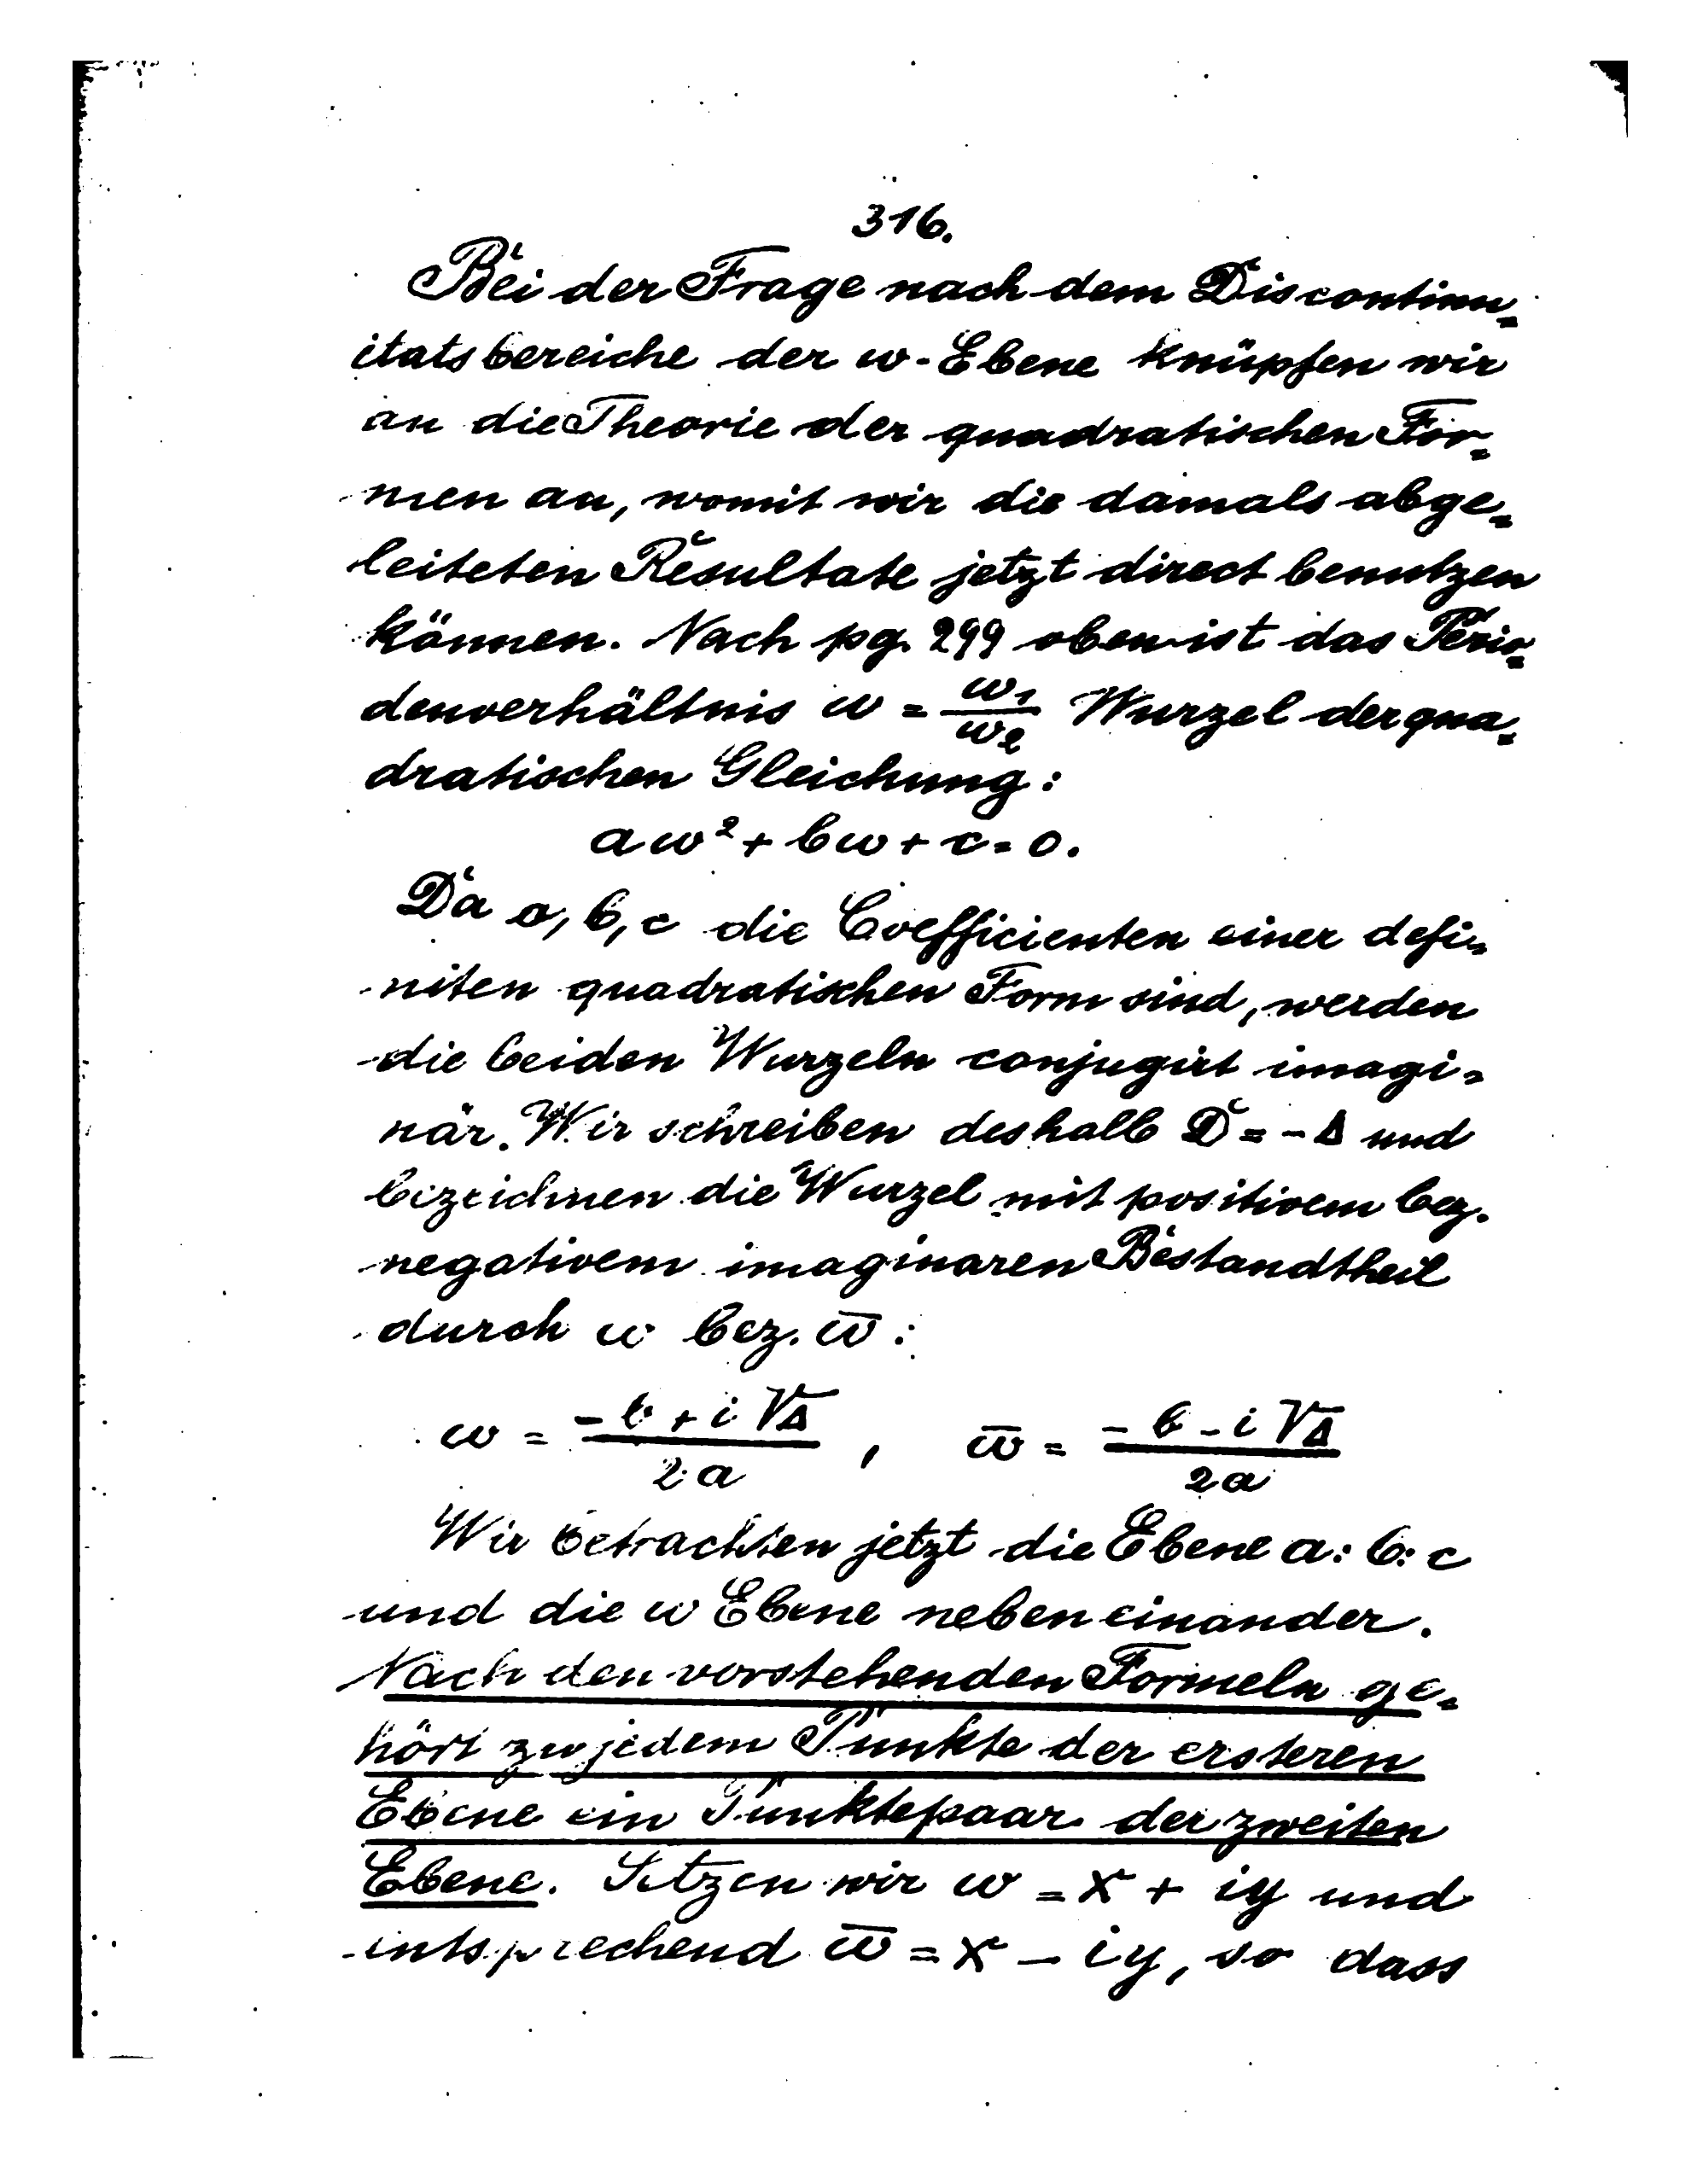 316.
Bei der Frage nach dem Discontinu-
itatsbereiche der ω-Ebene knüpfen wir
an die Theorie der quadratischen For-
men an, womit wir die damals abge-
leiteten Resultate jetzt direct benutzen
können. Nach pg. 299 oben ist das Perio-
denverhältnis ω = ω₁/ω₂ Wurzel der qua-
dratischen Gleichung:
aω² + bω + c = 0.
Da a, b, c die Coefficienten einer defi-
niten quadratischen Form sind, werden
die beiden Wurzeln conjugirt imagi-
när. Wir schreiben deshalb D = -Δ und
bezeichnen die Wurzel mit positivem bez.
negativem imaginaren Bestandtheil
durch ω bez. ω̅ :
ω = (-b + i √Δ)/2a , ω̅ = (-b - i √Δ)/2a
Wir betrachten jetzt die Ebene a : b : c
und die ω Ebene neben einander.
Nach den vorstehenden Formeln ge-
hört zu jedem Punkte der ersteren
Ebene ein Punktepaar der zweiten
Ebene. Setzen wir ω = x + iy und
entsprechend ω̅ = x - iy, so dass